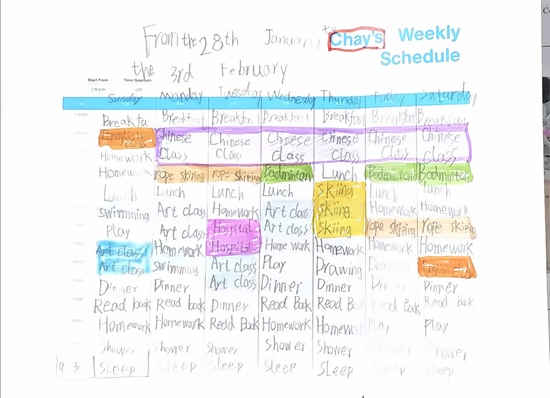 From the 28th January to Chay's Weekly
the 3rd February Schedule
Start From
Sunday Monday Tuesday Wednesday Thursday Friday Saturday
Breakfa Breakfast Breakfast Breakfast Breakfast Breakfast Breakfast
English class Chinese Chinese Chinese Chinese Chinese Chinese
Homework Class Class class Class Class Class
Homework rope skiring rope skiring Badminton Lunch Badminton Badminton
Lunch Lunch Lunch Lunch Skiing Lunch Lunch
Swimming Art class Homework Art class Skiing Homework Homework
Play Art class Hospital Art class Skiing rope skiring rope skiring
Art class Homework Hospital Homework Homework Homework Homework
Art class Swimming Art class Play Drawing
Dinner Dinner Art class Dinner Dinner Dinner Dinner
Read book Read Book Dinner Read Book Read Book Read Book Read Book
Homework Homework Read Book Homework Homework Play Play
Shower Shower Shower Shower Shower Shower
Sleep Sleep Sleep Sleep Sleep Sleep Sleep